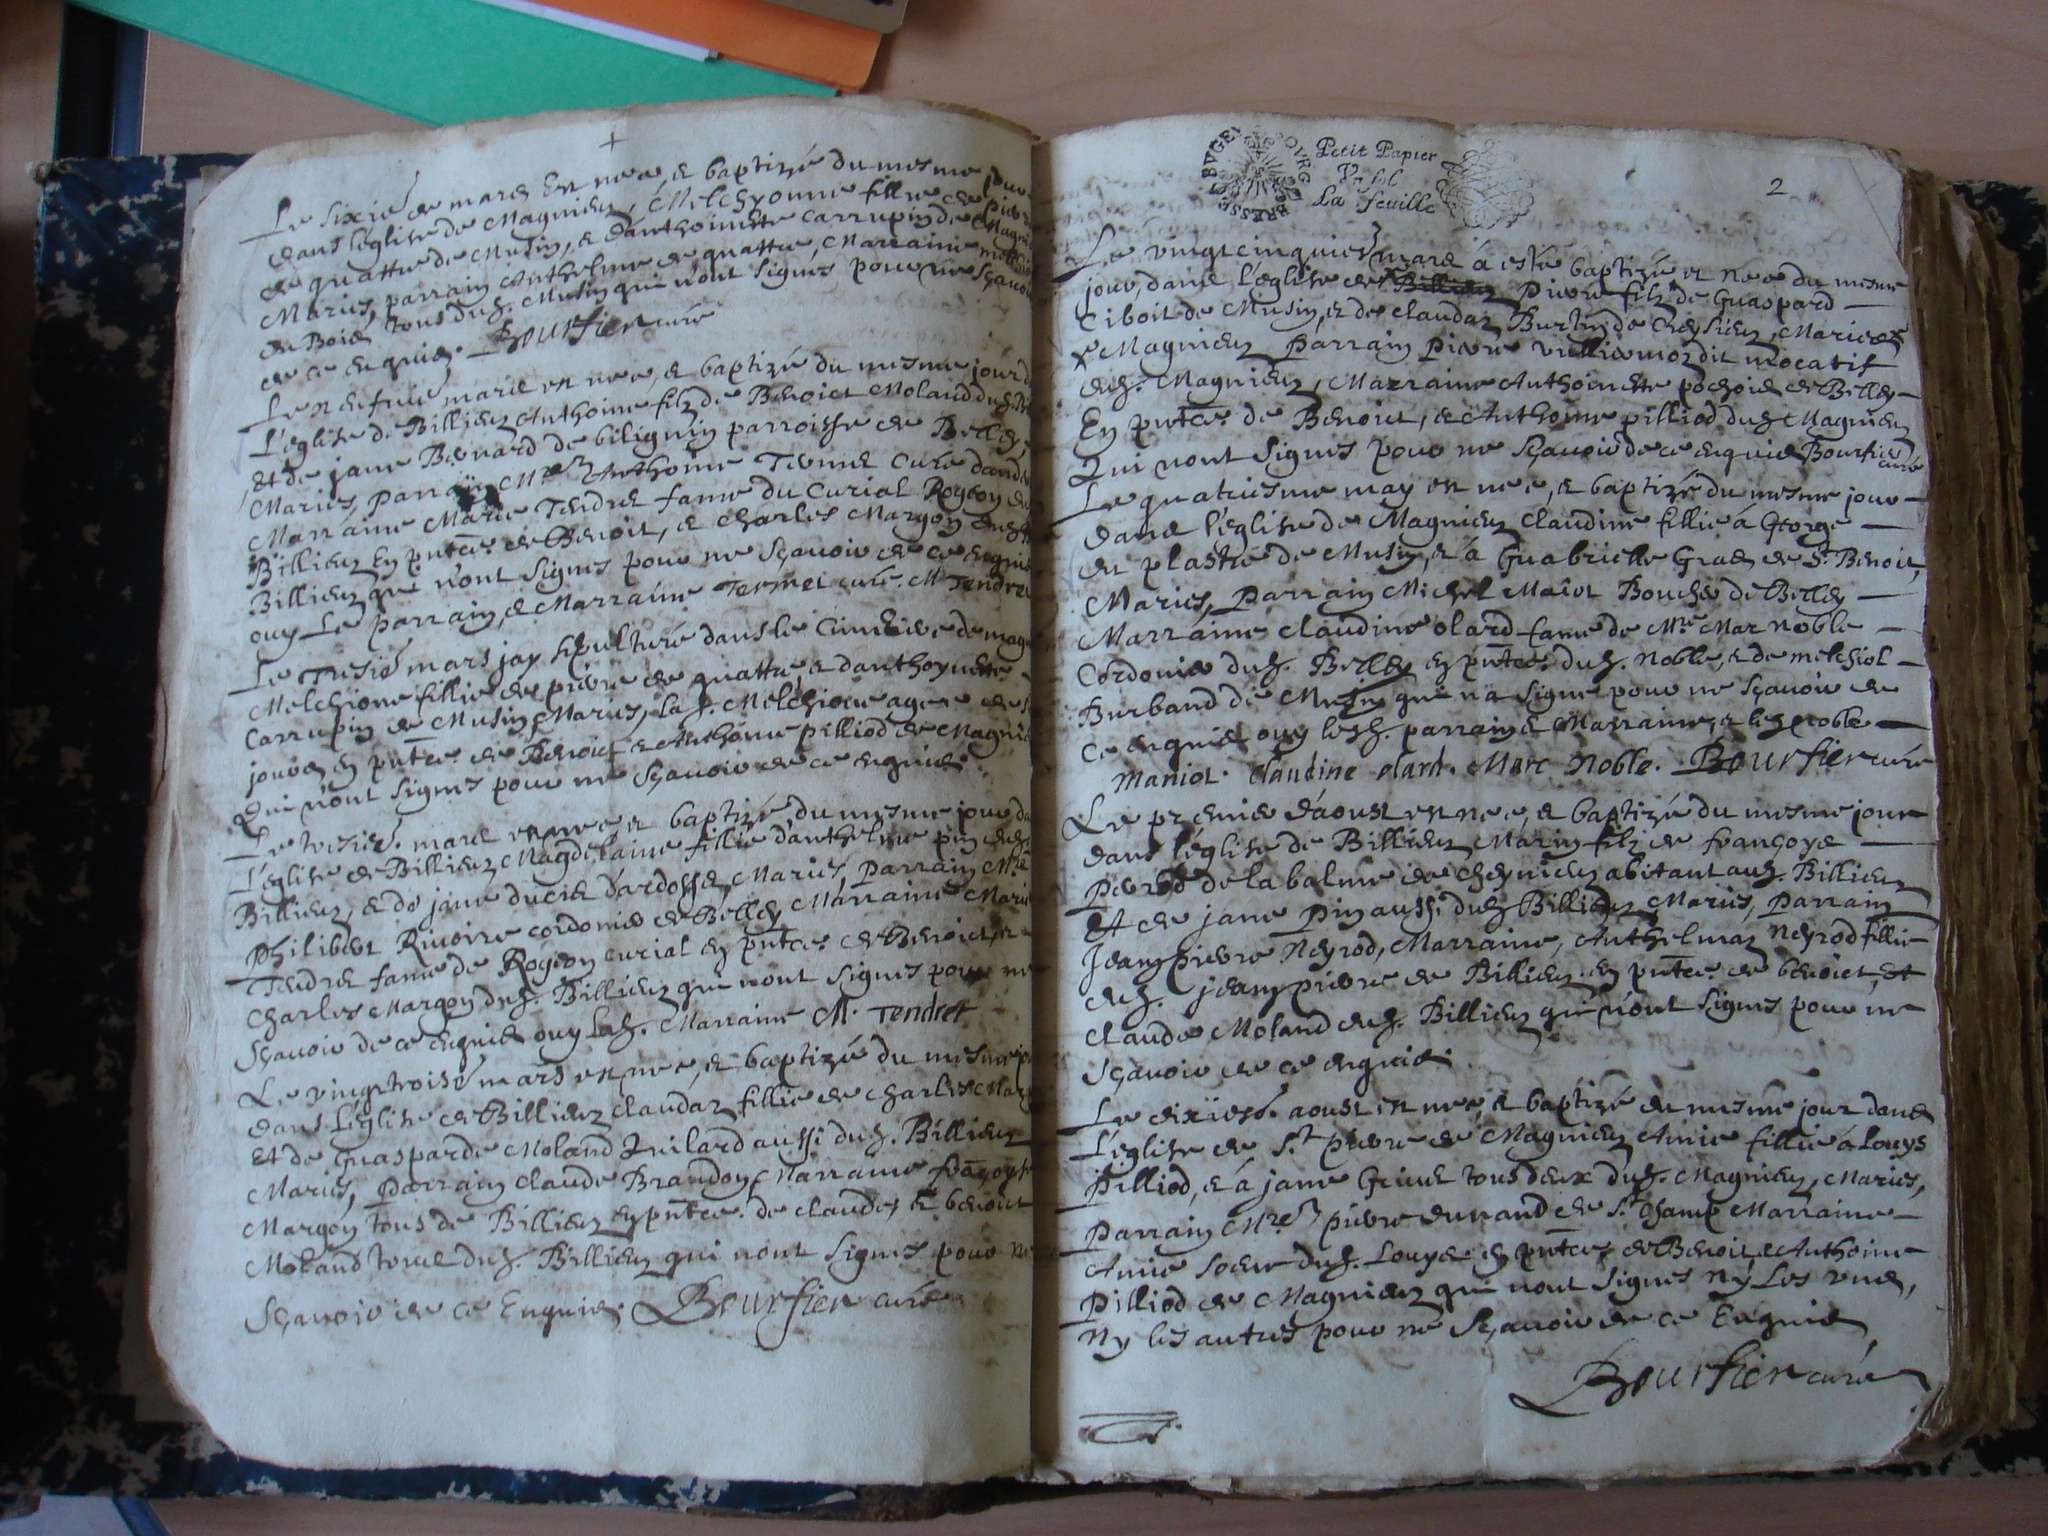 +
Le sixie de mars est nee, et baptizé du mesme jour
dans l'église de Magnieu, Melchyonne fillie de pierre
de quattre de Musin, et d'anthoinette Carrupin de Magni
Mariés, parrain Anthelme de quattre, Marraine
du Bois tous dud. Musin qui n'ont signés pour ne sçavoir
de ce enquis. Bourfier curé
Le neufvie mars est nee, et baptizé du mesme jour d
L'église de Billieu Anthoine filz de Benoict Moland dud. Bi
Et de jane Bernard de bilignin parroisse de Belley,
Mariés, parrain Mre Anthoine Termet Curé dand
Marraine Marie Tendret fame du Curial Rogeon de
Billieu En pntce de Benoit, et Charles Margon dud.
Billieu qui n'ont signés pour ne sçavoir de ce enquis
ouy Le parrain, et Marraine Termet curé. M Tendret
Le Tresié mars jay sepulturé dans le Cimetiere de mag
Melchione fillie de pierre de quattre, et danthoynette
Carrupin de Musin Mariés, la d. Melchione agee de
jours en pntce de Benoict et Anthoine pilliod de Magni
Qui n'ont signés pour ne sçavoir de ce enquis.
Le tresié. mars est nee, et baptizé du mesme jour da
L'église de Billieu Magdelaine fillie d'anthelme pin dud.
Billieu, et de jane ducret d'ardosset, Mariés, parrain Mre
Philibert Rivoire cordonié de Belley Marraine Marie
Tendret fame de Rogeon curial en pntce de Benoict, et
Charles Margon dud. Billieu qui n'ont signés pour ne
Sçavoir de ce enquis ouy lad. Marraine M. Tendret
Le vingt troisié mars est nee, et baptizé du mesme jo
dans L'église de Billieu Claudaz fillie de Charles Marg
Et de Guasparde Moland Quilard aussi dud. Billieu
Mariés, parrain Claude Brandon Marraine françoyse
Margon tous de Billieu en pntce. de Claude, et benoict
Moland tous dud. Billieu qui n'ont signés pour ne
Sçavoir de ce Enquis. Bourfier curé
BVGEY BOVRG BRESSE
Petit Papier
La feuille
2
Le vingt cinquiesme mars a esté baptizé et nee du mesme
jour, dans l'église de Billieu pierre filz de Guaspard
Ciboit de Musin, et de Claudaz Burtin de Creysieu, Mariés
Magnieu Parrain pierre Vulliermoz dit mocatif
dud. Magnieu, Marraine Anthoinette pochoid de Belley
En pntce. de Benoict, et Anthoine pilliod dud. Magnieu
Qui n'ont signés pour ne sçavoir de ce enquis Bourfier curé
Le quatriesme may est nee, et baptizé du mesme jour
dans l'église de Magnieu Claudine fillie à George
du plastre de Musin, et à Guabrielle Gras de St. Benoit,
Mariés, Parrain Michel Maniot Boucher de Belley
Marraine Claudine olard fame de Mre Mar noble
Cordonié dud. Belley en pntce. dud. noble, et de melchiol
Burband de Musin qui n'a signé pour ne sçavoir de
Ce enquis ouy lesd. parrain et Marraine, et led. noble
Maniot. Claudine olard. Marc Noble. Bourfier curé
Le premier d'aoust est nee, et baptizé du mesme jour
dans l'église de Billieu Marin filz de françoys
perrod de la balme de Cheynieu abitant aud. Billieu
Et de jane Pin aussi dud. Billieu Mariés, Parrain
Jean pierre Neyrod, Marraine, Anthelmaz Neyrod fillie
dud. jean pierre de Billieu en pntce. de benoict, et
claude Moland dud. Billieu qui n'ont signés pour ne
Sçavoir de ce enquis.
Le dixiesé. aoust est nee, et baptizé du mesme jour dans
L'église de St pierre de Magnieu Amie fillie à Louys
Pilliod, et à jane Grinet tous deux dud. Magnieu, Mariés,
Parrain Mre pierre dunand de St Champ Marraine
Amie soeur dud. Louys en pntce de Benoit, et Anthoine
Pilliod de Magnieu qui n'ont signés ny Les uns,
ny les autres pour ne Sçavoir de ce Enquis
Bourfier curé